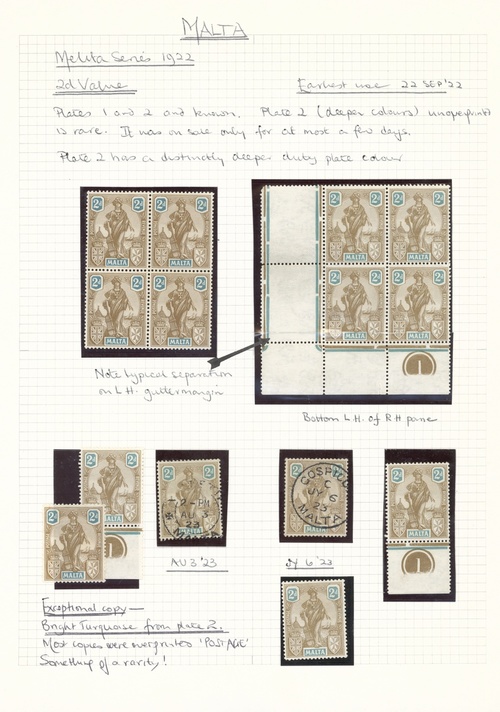 MALTA
Melita Series 1922
2d Value
Earliest use 22 SEP '22
Plates 1 and 2 and known. Plate 2 (deeper colours) unoverprinted
is rare. It was on sale only for at most a few days.
Plate 2 has a distinctly deeper duty plate colour
2d 2d 2d 2d
MALTA MALTA
2d 2d 2d 2d
MALTA MALTA
2d 2d 2d 2d
MALTA MALTA
2d 2d 2d 2d
MALTA MALTA
1
Note typical separation
on L.H. gutter margin
Bottom L.H. of R.H pane
2d 2d
MALTA
1
2d 2d
MALTA
2d
2-PM
AU 3
AU 3 '23
2d 2d
COSPICUA
C
JY 6
23
MALTA
JY 6 '23
2d 2d
MALTA
1
2d 2d
MALTA
Exceptional copy —
Bright Turquoise from plate 2.
Most copies were overprinted 'POSTAGE'
Something of a rarity!